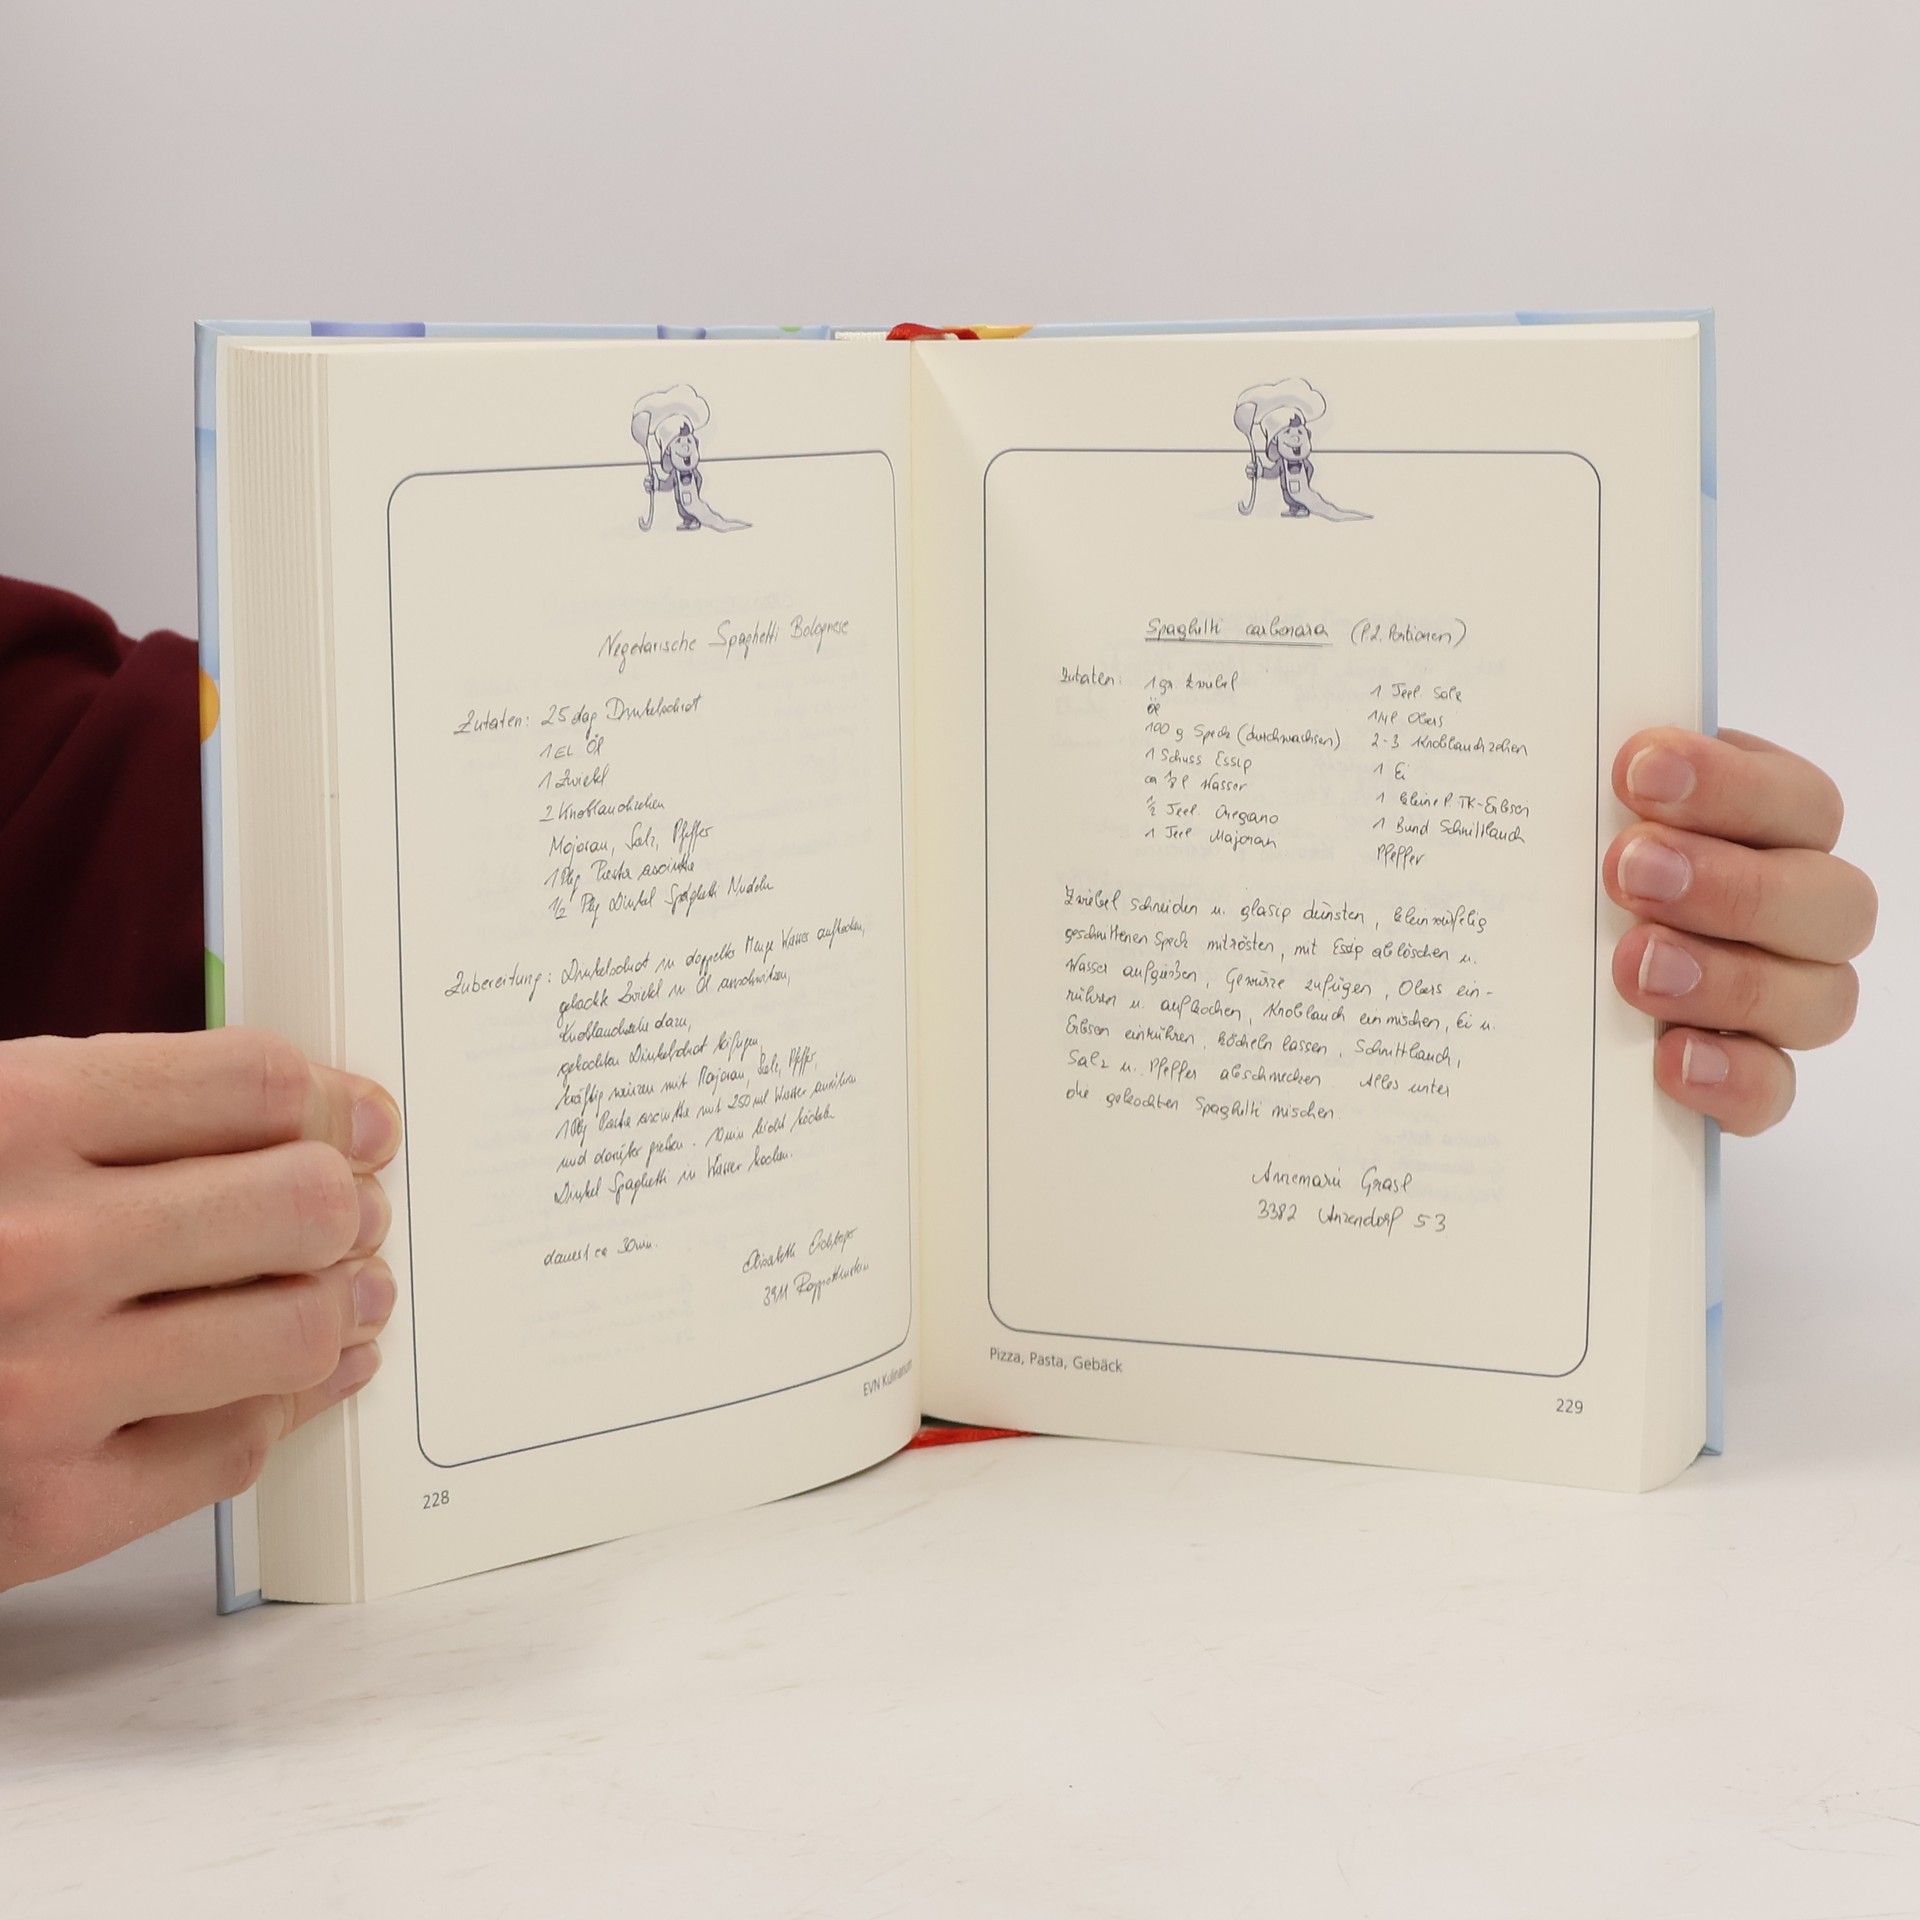 Vegetarische Spaghetti Bolognese
Zutaten: 25 dag Dinkelschrot
1 EL Öl
1 Zwiebel
2 Knoblauchzehen
Majoran, Salz, Pfeffer
1 Pkg Pasta asciutta
1/2 Pkg Dinkel Spaghetti Nudeln
Zubereitung: Dinkelschrot in doppelter Menge Wasser aufkochen,
gehackte Zwiebel in Öl anschwitzen,
Knoblauchzehe dazu,
gekochten Dinkelschrot beifügen,
kräftig würzen mit Majoran, Salz, Pfeffer,
1 Pkg Pasta asciutta mit 250 ml Wasser anrühren
und darüber gießen. 10 min leicht köcheln
Dinkel Spaghetti in Wasser kochen.
dauert ca 30 min.
Elisabeth
3911 Rappottenstein
EVN Kulinarium
228
Spaghetti carbonara (f. 2. Portionen)
Zutaten: 1 gr. Zwiebel
Öl
100 g Speck (durchwachsen)
1 Schuss Essig
ca 1/8 l Wasser
1/2 Teel. Oregano
1 Teel Majoran
1 Teel. Salz
1/4 l Obers
2-3 Knoblauchzehen
1 Ei
1 kleine P. TK-Erbsen
1 Bund Schnittlauch
Pfeffer
Zwiebel schneiden u. glasig dünsten, kleinwürfelig
geschnittenen Speck mitrösten, mit Essig ablöschen u.
Wasser aufgießen, Gewürze zufügen, Obers ein-
rühren u. aufkochen, Knoblauch einmischen, Ei u.
Erbsen einrühren, köcheln lassen, Schnittlauch,
Salz u. Pfeffer abschmecken Alles unter
die gekochten Spaghetti mischen.
Annemarie Grasl
3382 Anzendorf 53
Pizza, Pasta, Gebäck
229